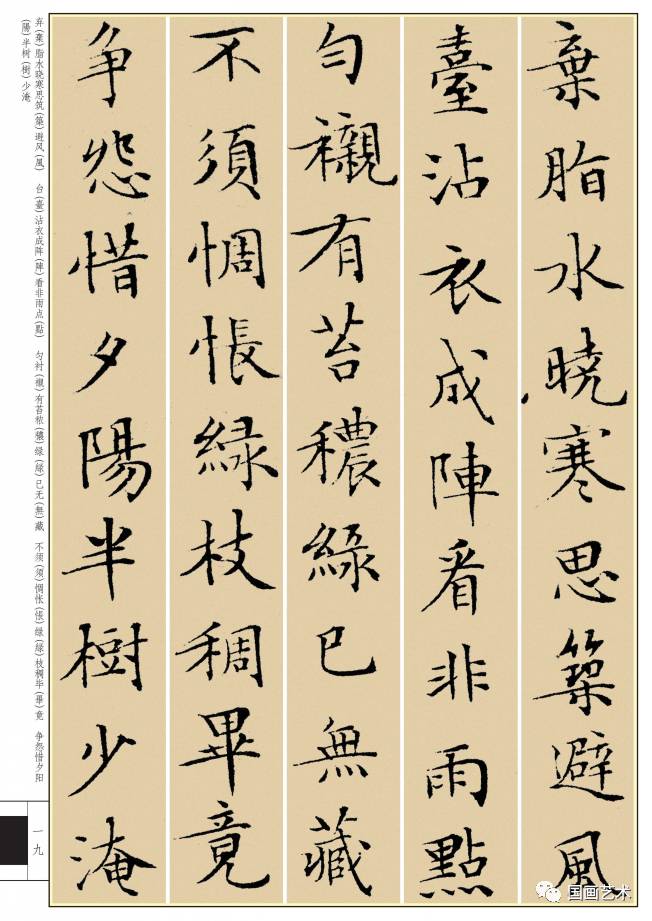 棄脂水曉寒思築避風
臺沾衣成陣看非雨點
勻襯有苔穠綠已無藏
不須惆悵綠枝稠畢竟
争怨惜夕陽半樹少淹
弃(棄)脂水晓寒思筑(築)避风(風) 台(臺)沾衣成阵(陣)看非雨点(點) 匀衬(襯)有苔秾(穠)绿(綠)已无(無)藏 不须(須)惆怅(悵)绿(綠)枝稠毕(畢)竟 争怨惜夕阳
(陽)半树(樹)少淹
一九
国画艺术